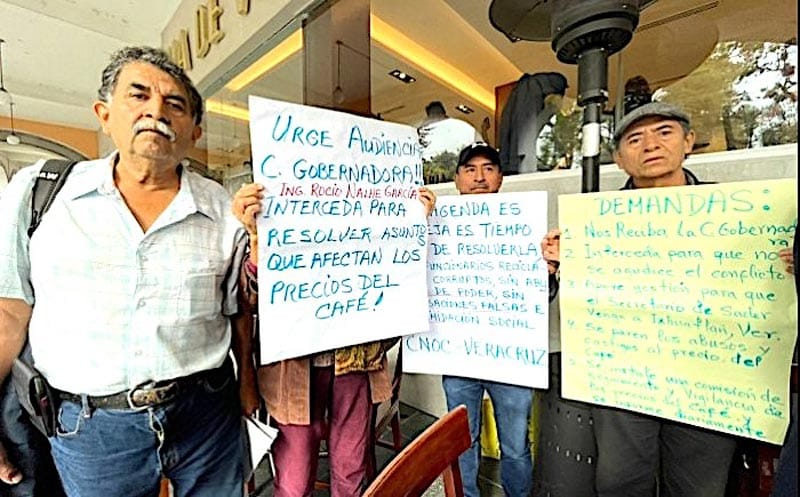 DE
URGE AUDIENCIA
C. GOBERNADORA!!
ING. ROCÍO NAHLE GARCÍA
INTERCEDA PARA
RESOLVER ASUNTOS
QUE AFECTAN LOS
PRECIOS DEL
CAFÉ!
AGENDA ES
EJA ES TIEMPO
DE RESOLVERLA,
UNCIONARIOS RECICLA
CORRUPTOS, SIN ABU
DE PODER, SIN
SACIONES FALSAS E
MIDACIÓN SOCIAL
CNOC-VERACRUZ
DEMANDAS:
1 Nos Reciba la C Gobernadora
2 Interceda para que no
se agudice el conflicto
3 gestión para que
el Secretario de Sader
Venga a Ixhuatlán, Ver.
4 Se paren los abusos y
castigo al precio del
Café
5 Se instale una comisión de
y Vigilancia de
los precios del café y
se informe diariamente